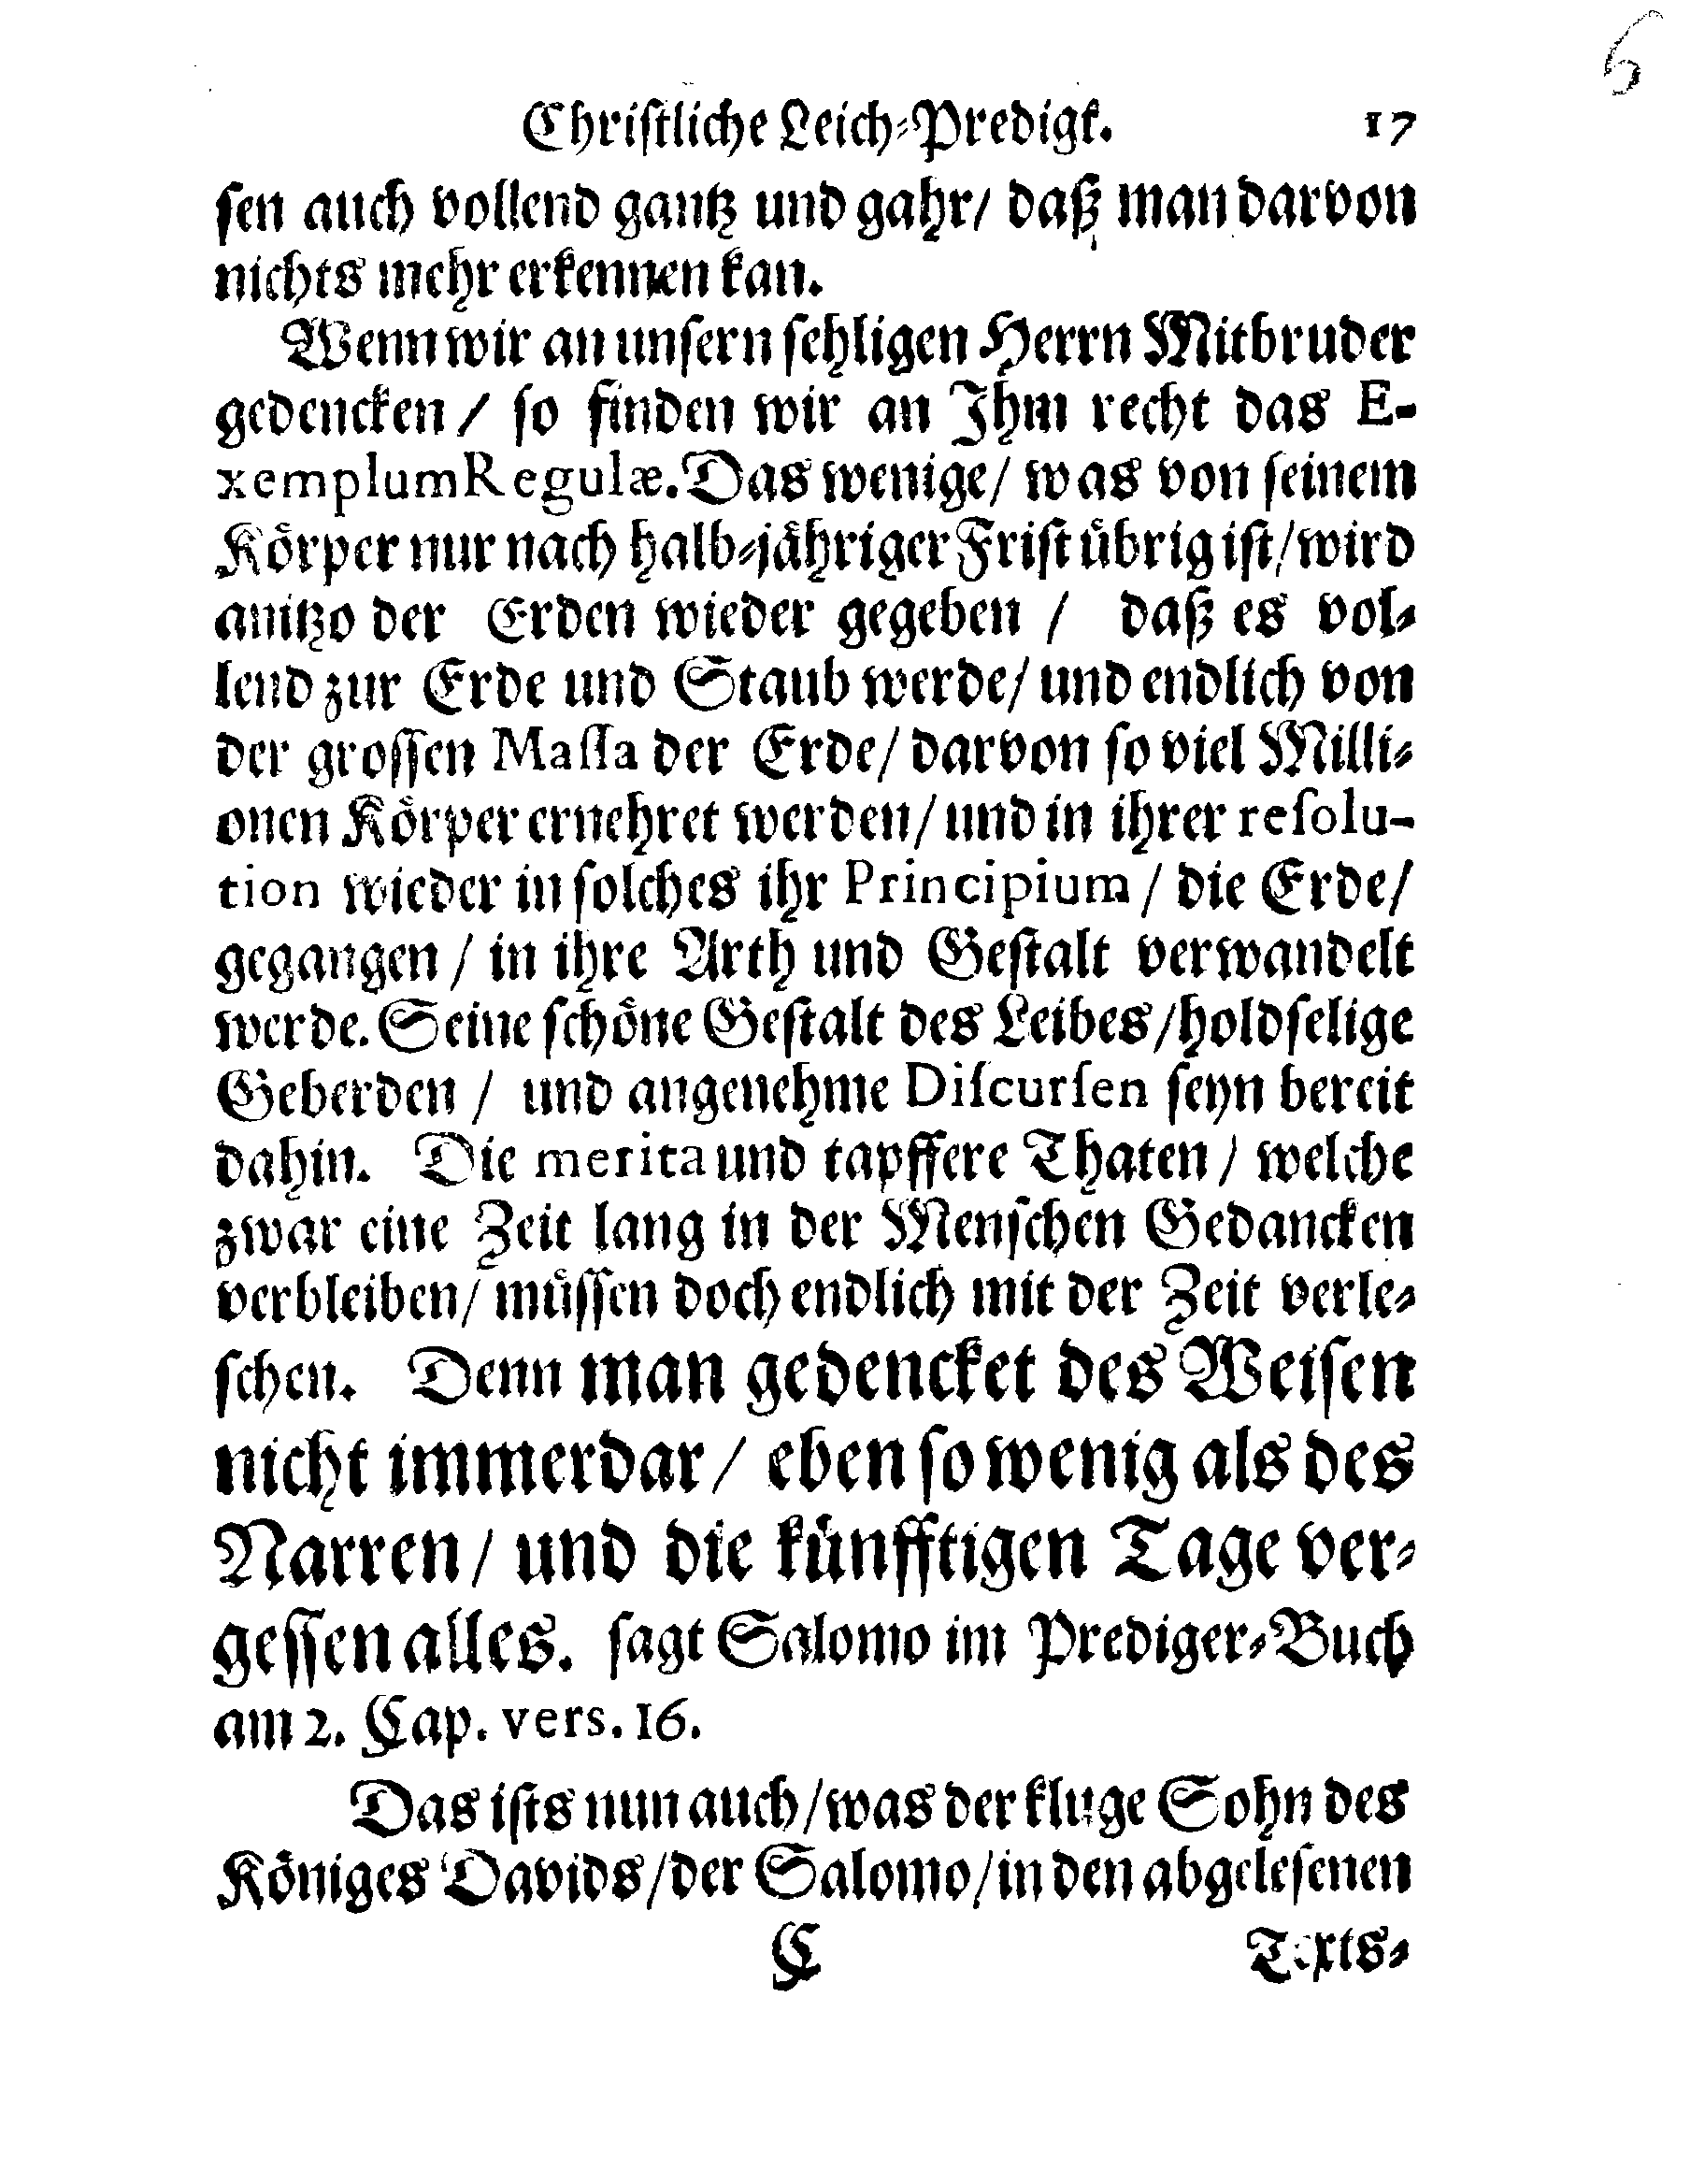 6
Christliche Leich-Predigt. 17
sen auch vollend gantz und gahr/ daß man darvon
nichts mehr erkennen kan.
Wenn wir an unsern sehligen Herrn Mitbruder
gedencken/ so finden wir an Ihm recht das E-
xemplum Regulæ. Das wenige/ was von seinem
Körper nur nach halb-jähriger Frist übrig ist/ wird
anitzo der Erden wieder gegeben / daß es vol-
lend zur Erde und Staub werde/ und endlich von
der grossen Massa der Erde/ darvon so viel Milli-
onen Körper ernehret werden/ und in ihrer resolu-
tion wieder in solches ihr Principium / die Erde/
gegangen / in ihre Arth und Gestalt verwandelt
werde. Seine schöne Gestalt des Leibes/ holdselige
Geberden / und angenehme Discursen seyn bereit
dahin. Die merita und tapffere Thaten / welche
zwar eine Zeit lang in der Menschen Gedancken
verbleiben/ müssen doch endlich mit der Zeit verle-
schen. Denn man gedencket des Weisen
nicht immerdar/ eben so wenig als des
Narren/ und die künfftigen Tage ver-
gessen alles. sagt Salomo im Prediger-Buch
am 2. Cap. vers. 16.
Das ists nun auch/ was der kluge Sohn des
Königes Davids/ der Salomo/ in den abgelesenen
C Texts-